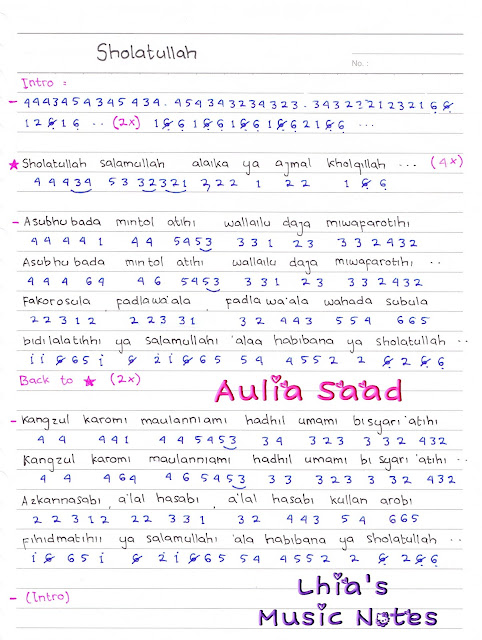 Sholatullah
No. :
Intro =
- 4443454345434 . 454343234323 . 3432321232166̸
126̸16 .. (2x) 16̸616̸616̸616̸6216̸6 ...
★ Sholatullah salamullah alaika ya ajmal kholqillah ... (4x)
4 4 4 3 4 5 3 3 2 3 2 1 2 2 2 1 2 2 1 6̸ 6
- Asubhu bada mintol atihi wallailu daja miwaparotihi
4 4 4 4 1 4 4 5 4 5 3 3 3 1 2 3 3 3 2 4 3 2
Asubhu bada mintol atihi wallailu daja miwaparotihi ..
4 4 4 6 4 4 6 5 4 5 3 3 3 1 2 3 3 3 2 4 3 2
Fakorosula , padlawa'ala , padla wa'ala wahada subula
2 2 3 1 2 2 2 3 3 1 3 2 4 4 3 5 5 4 6 6 5
bidilalatihhi ya salamullahi 'alaa habibana ya sholatullah ..
i i 6̸ 6 5 i 6̸ 2 i 6̸ 6 5 5 4 4 5 5 2 2 6̸ 2 6̸ 6
Back to ★ (2x)
Aulia Saad
- Kangzul karomi maulanniami hadhil umami bisyari'atihi
4 4 4 4 1 4 4 5 4 5 3 3 4 3 2 3 3 3 2 4 3 2
Kangzul karomi maulanniami hadhil umami bi syari'atihi ..
4 4 4 6 4 4 6 5 4 5 3 3 3 3 2 3 3 3 2 4 3 2
Azkannasabi , a'lal hasabi , a'lal hasabi kullan arobi
2 2 3 1 2 2 2 3 3 1 3 2 4 4 3 5 4 6 6 5
fihidmatihii ya salamullahi 'ala habibana ya sholatullah ..
i 6̸ 6 5 i 6̸ 2 i 6̸ 6 5 5 4 4 5 5 2 2 6̸ 2 6̸ 6
- (Intro)
Lhia's
Music Notes